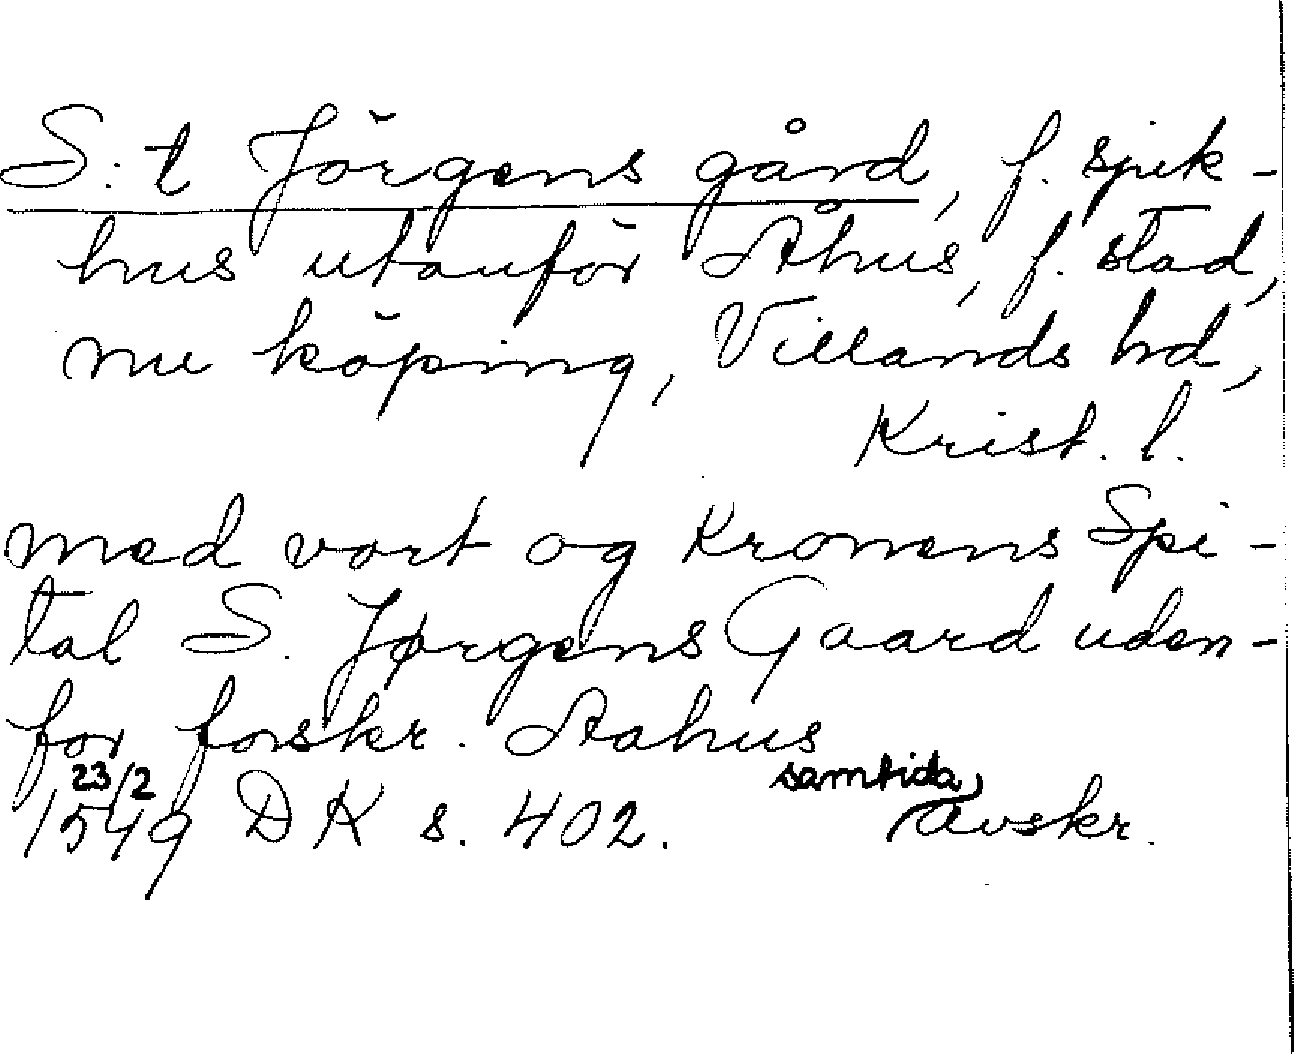 S:t Jörgens gård, f. sjuk-
hus utanför Åhus, f. stad,
nu köping, Villands hd,
Krist. l.
med vort og Kronens Spi-
tal S. Jørgens Gaard uden-
for forskr. Aahus
23/2 samtida
1549 DK s. 402. avskr.